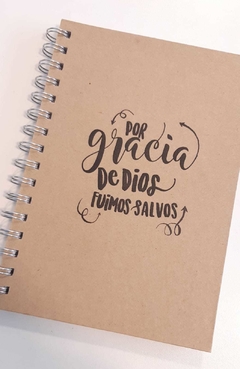 POR
gracia
De DIOS
FUIMOS SALVOS